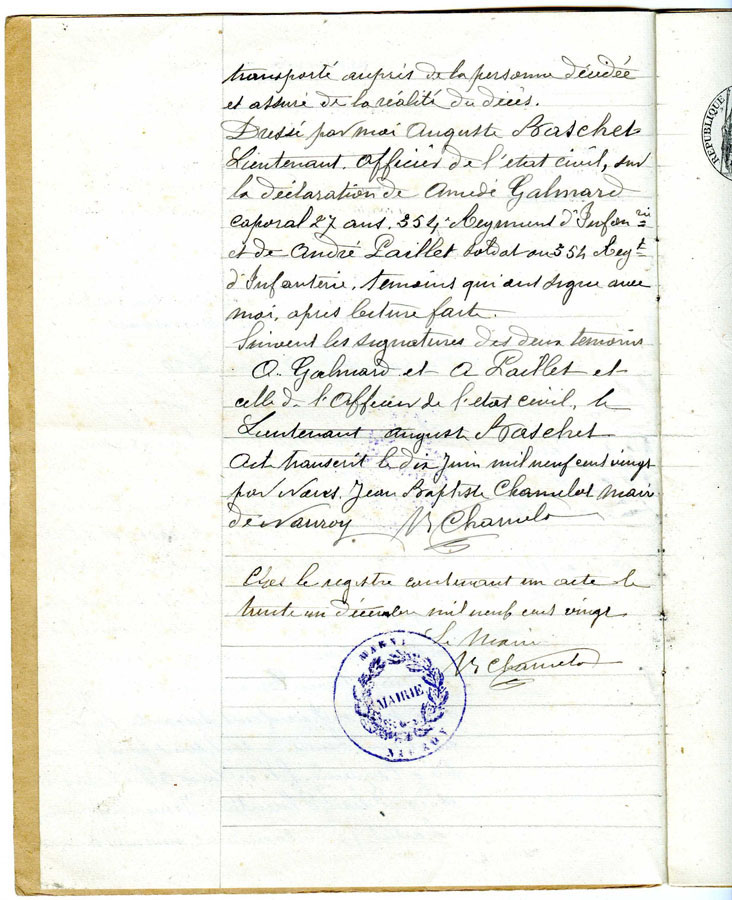 transporté auprès de la personne décédée
et assuré de la réalité du décès.
Dressé par moi Auguste Braschet
Lieutenant. Officier de l'état civil, sur
la déclaration de Amedé Galmard
caporal 27 ans. 354e Regiment d'Infanrie
et de André Paillet soldat au 354 Regt
d'Infanterie. temoins qui ont signé avec
moi, après lecture faite.
Suivent les signatures des deux temoins
A. Galmard et A Paillet et
celle de l'Officier de l'état civil, le
Lieutenant Auguste Braschet
Acte transcrit le dix Juin mil neuf cent vingt
par Nous. Jean Baptiste Chamelot maire
de Nauroy Chamelot
Clos le registre contenant un acte le
trente un décembre mil neuf cent vingt
Le Maire
Chamelot
MAIRIE
NAUROY
REPUBLIQUE